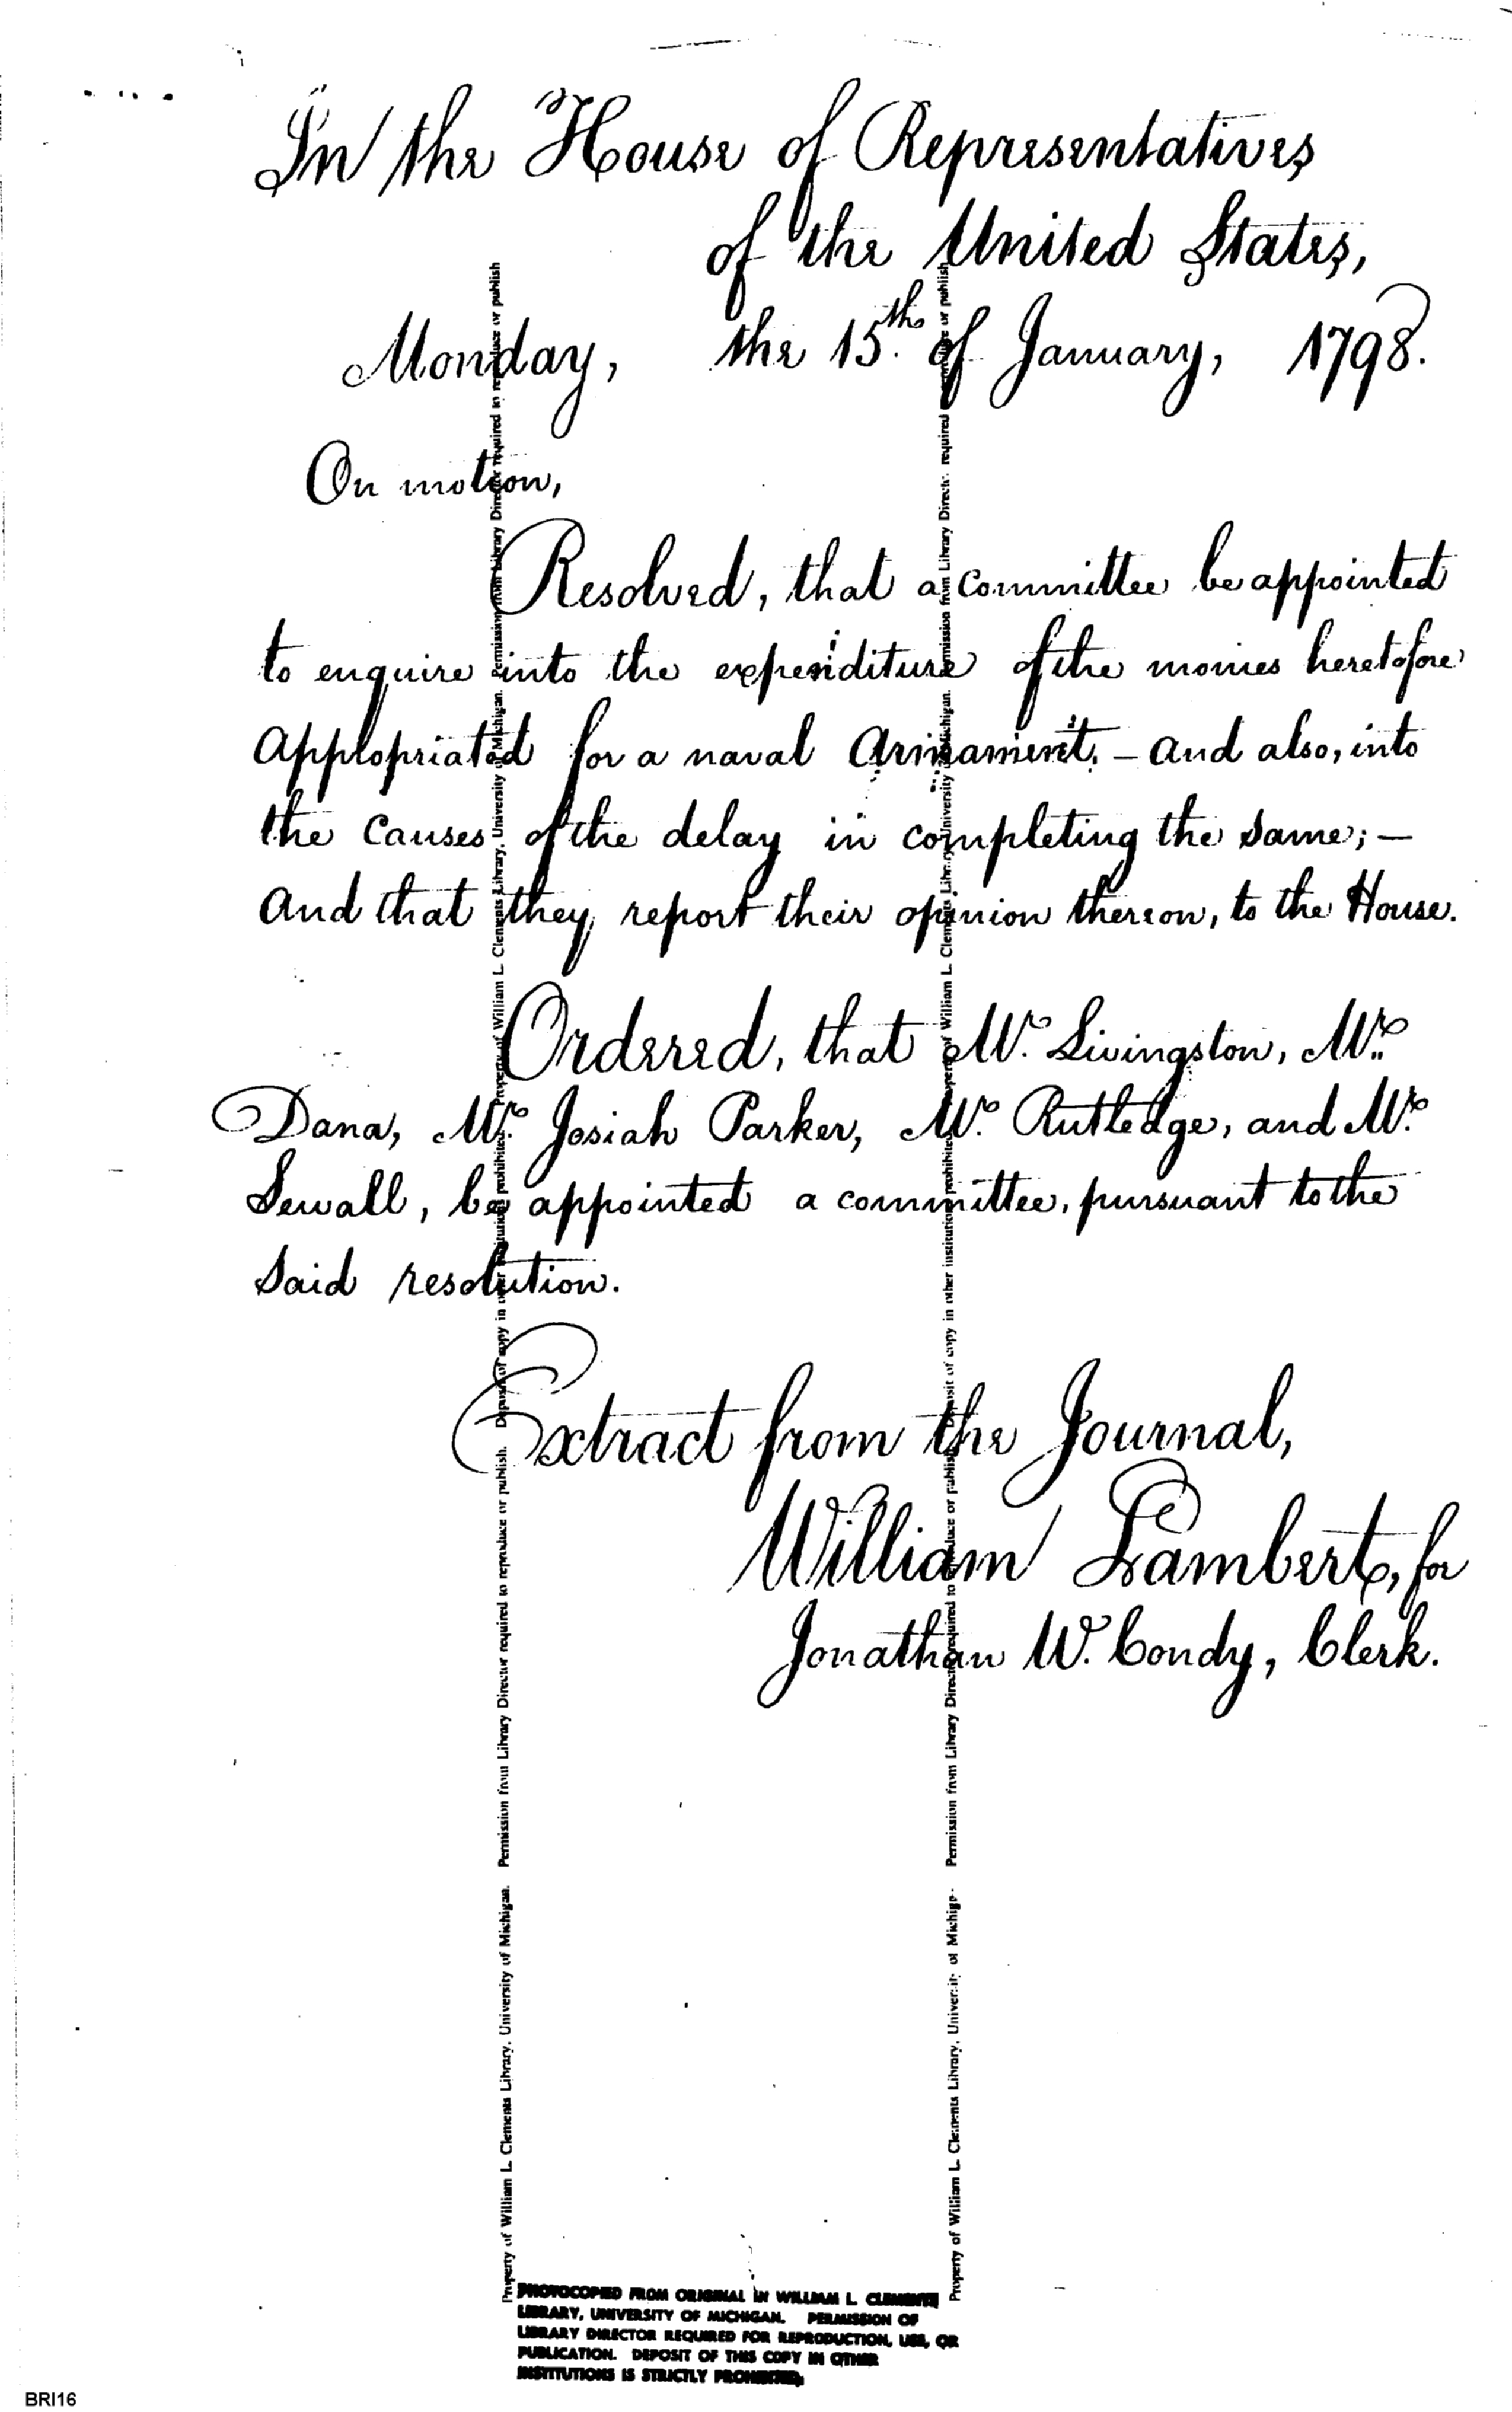 In the House of Representatives
of the United States,
Monday, the 15th. of January, 1798.
On motion,
Resolved, that a committee be appointed
to enquire into the expenditure of the monies heretofore
appropriated for a naval Armament, – and also, into
the causes of the delay in completing the same; –
and that they report their opinion thereon, to the House.
Ordered, that Mr. Livingston, Mr.
Dana, Mr. Josiah Parker, Mr. Rutledge, and Mr.
Sewall, be appointed a committee, pursuant to the
said resolution.
Extract from the Journal,
William Lambert, for
Jonathan W. Condy, Clerk.
Property of William L. Clements Library, University of Michigan. Permission from Library Director required to reproduce or publish. Deposit of copy in other institutions prohibited. Property of William L. Clements Library, University of Michigan. Permission from Library Director required to reproduce or publish
Property of William L. Clements Library, University of Michigan. Permission from Library Director required to reproduce or publish. Deposit of copy in other institutions prohibited. Property of William L. Clements Library, University of Michigan. Permission from Library Director required to reproduce or publish
PHOTOCOPIED FROM ORIGINAL IN WILLIAM L. CLEMENTS
LIBRARY, UNIVERSITY OF MICHIGAN. PERMISSION OF
LIBRARY DIRECTOR REQUIRED FOR REPRODUCTION, USE, OR
PUBLICATION. DEPOSIT OF THIS COPY IN OTHER
INSTITUTIONS IS STRICTLY PROHIBITED.
BRI16